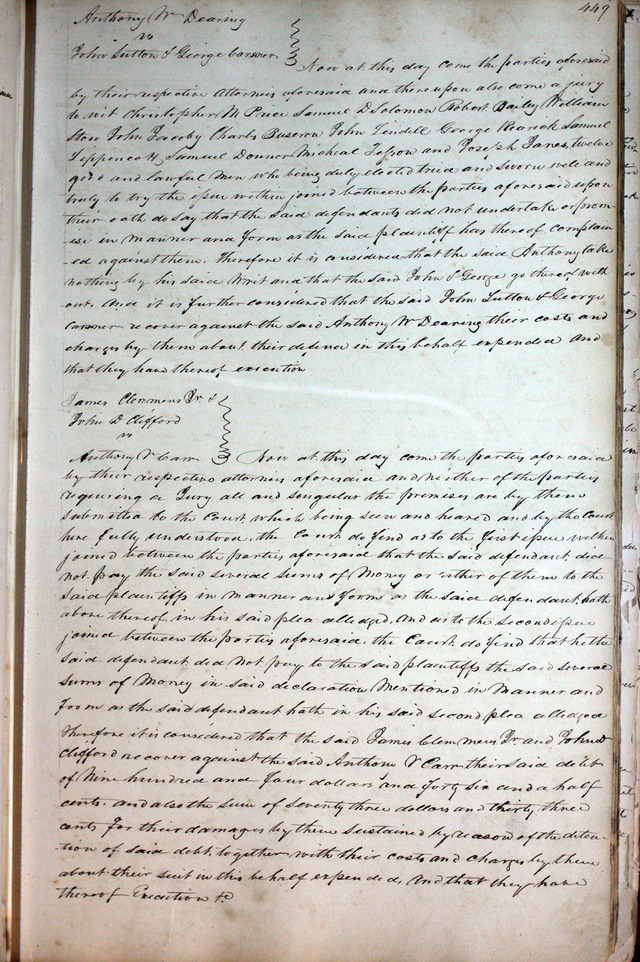 449
Anthony W Dearing
vs
John Sutton & George Carsner
Now at this day come the parties aforesaid
by their respective attornies aforesaid and thereupon also come a jury
to wit Christopher M Price Samuel D Solomon Robert Baily William
Stow John Jacoby Charles Buseron John Lindell George Rearick Samuel
Tippencott Samuel Donner Micheal and Joseph Janes, twelve
good and lawful men who being duly elected tried and sworn well and
truly to try the issue within joined between the parties aforesaid upon
their oath do say that the said defendants did not undertake or prom-
ise in manner and form as the said plaintiff has thereof complain
-ed against them. Therefore it is considered that the said Anthony take
nothing by his said Writ and that the said John & George go thereof with
out. And it is further considered that the said John Sutton & George
Carsner recover against the said Anthony W Dearing their costs and
charges by them about their defence in this behalf expended and
that they have thereof execution
James Clemmens Jr. &
John D Clifford
vs
Anthony V Carr
Now at this day come the parties aforesaid
by their respective attornies aforesaid and neither of the parties
requiring a Jury all and singular the premises are by them
submitted to the Court, which being seen and heard and by the Court
here fully understood, the Court do find as to the first issue within
joined between the parties aforesaid that the said defendant did
not pay the said several sums of Money or either of them to the
said plaintiffs in manner and form as the said defendant hath
above thereof in his said plea alledged, and as to the second issue
joined between the parties aforesaid, the Court do find that he the
said defendant did not pay to the said plaintiffs the said several
sums of Money in said declaration Mentioned in Manner and
form as the said defendant hath in his said second plea alledged
Therefore it is considered that the said James Clemmens Jr and John D
Clifford recover against the said Anthony V Carr their said debt
of Nine hundred and four dollars and forty six and a half
cents. and also the sum of seventy three dollars and thirty three
cents for their damages by them sustained by reason of the deten-
tion of said debt, together with their costs and charges by them
about their suit in this behalf expended, And that they have
thereof Execution &c